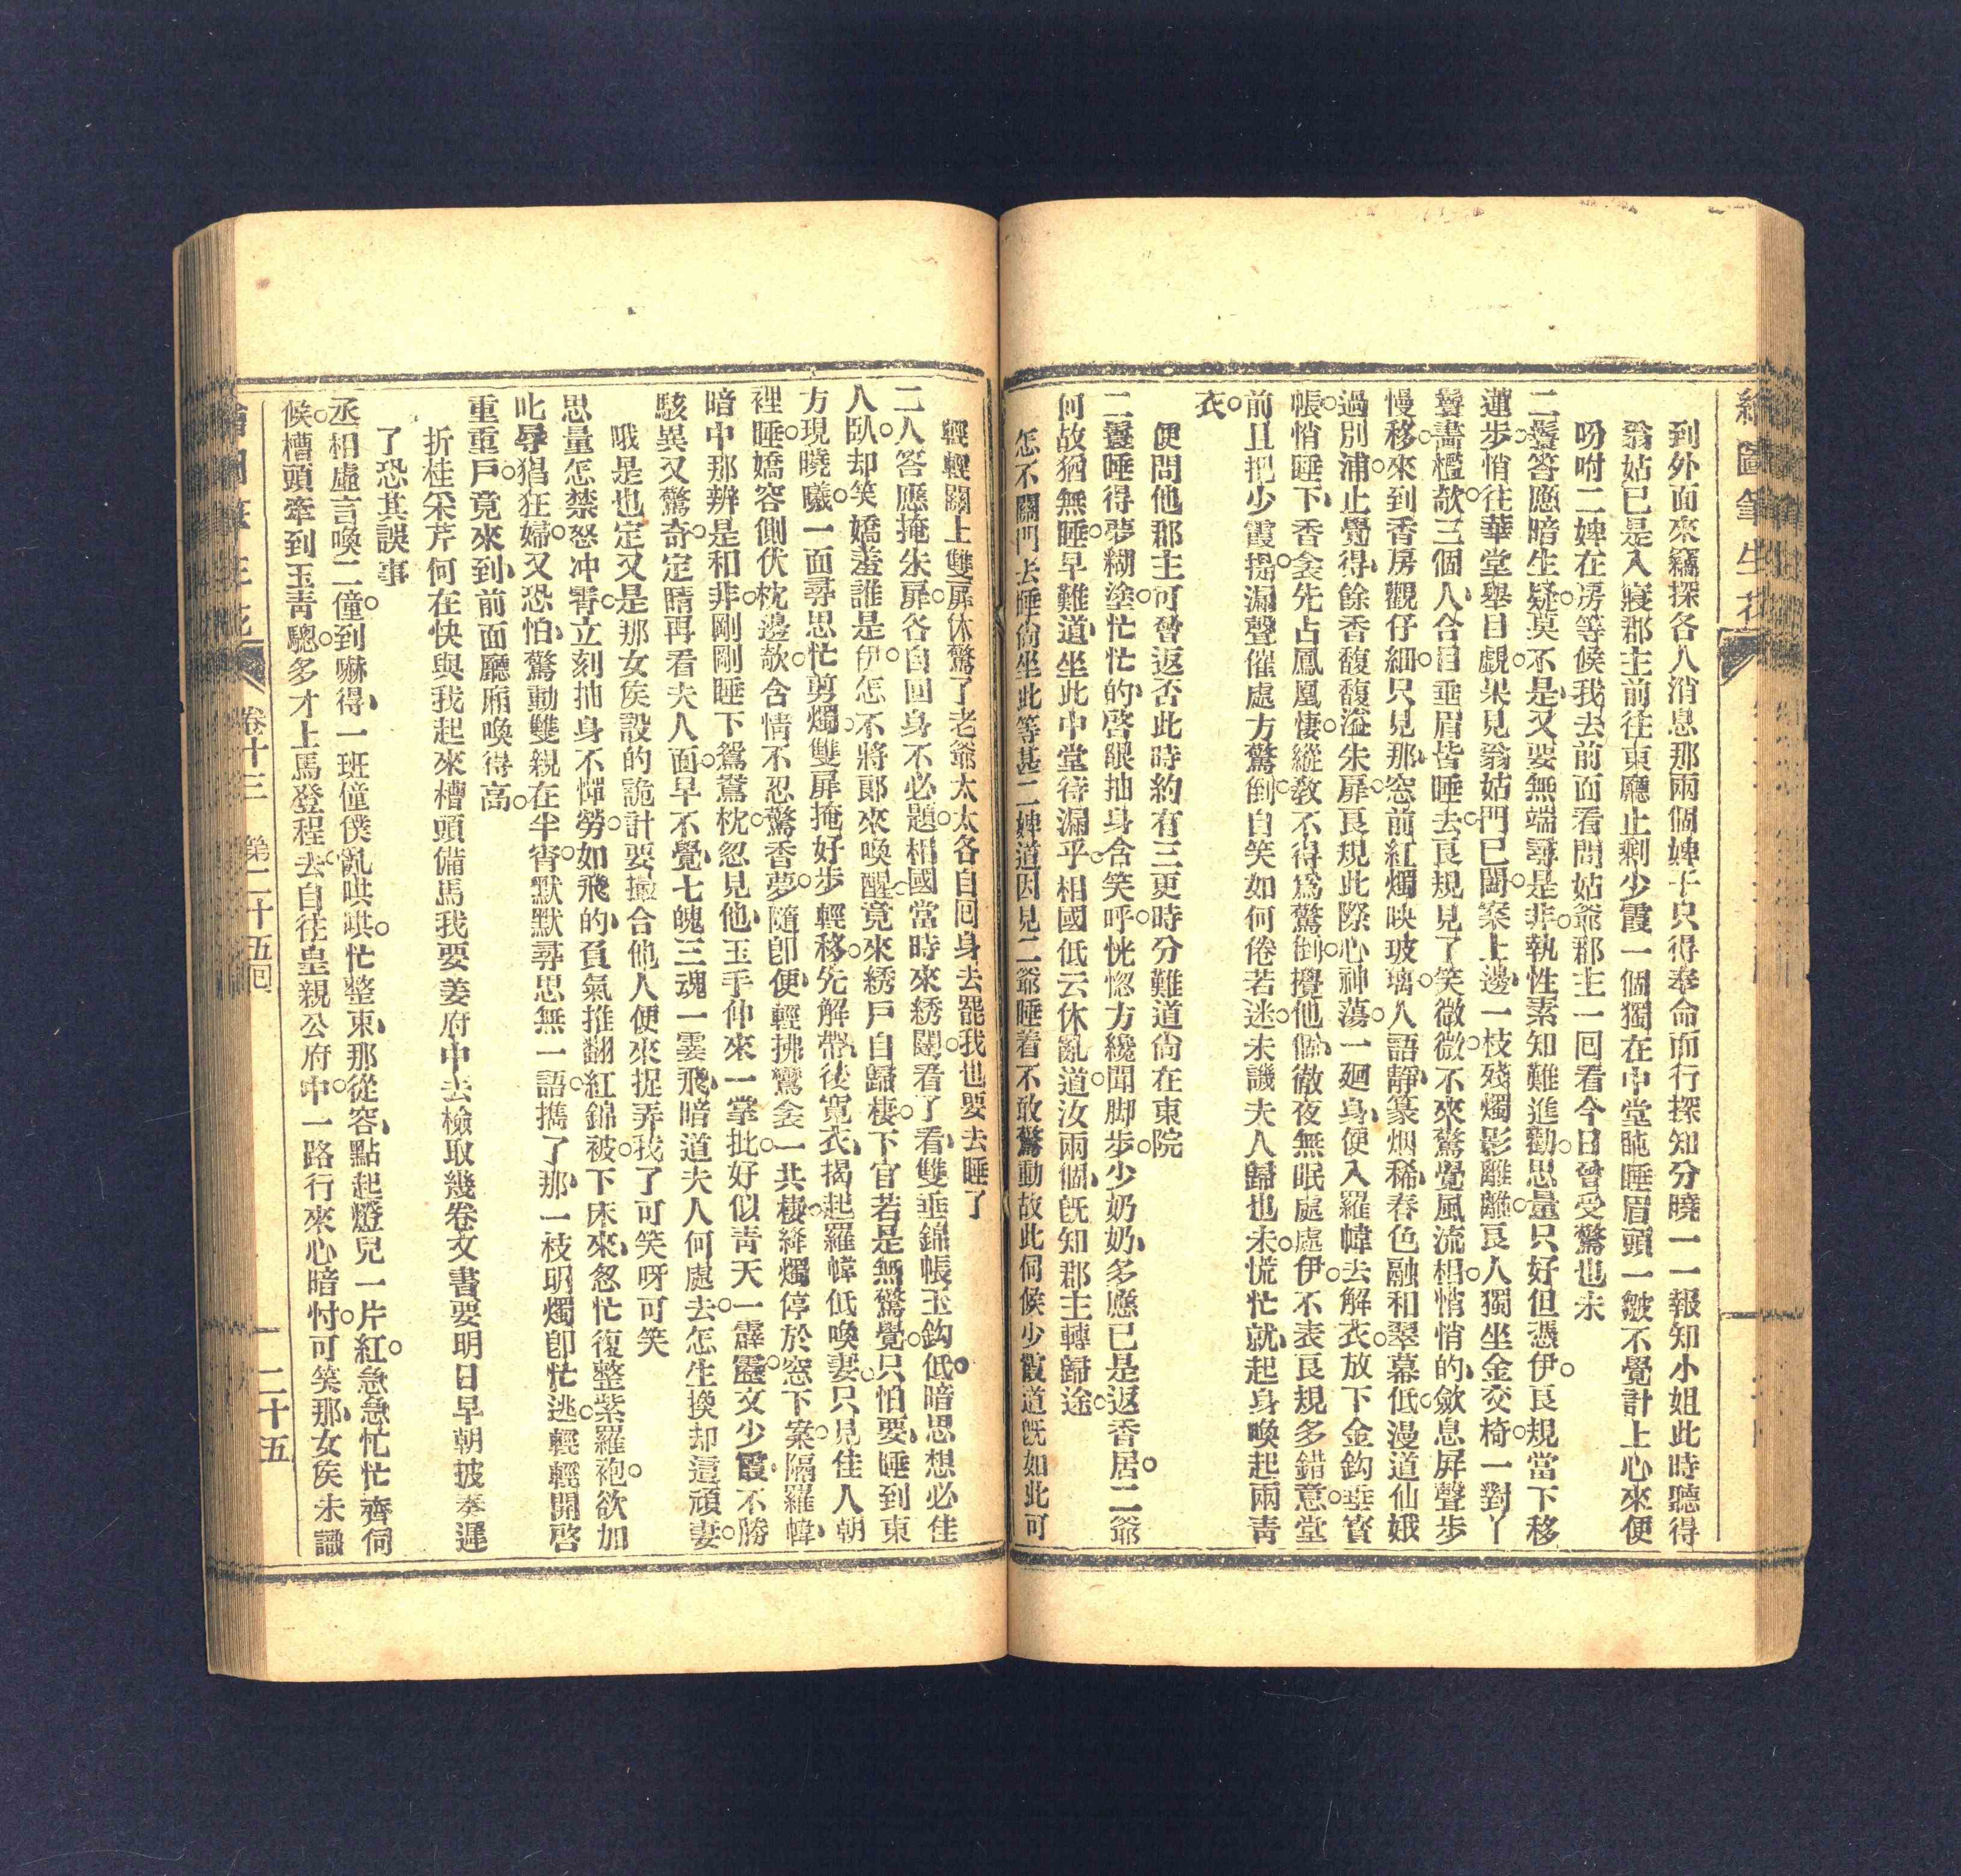 繪圖筆生花
到外面來竊探各人消息那兩個婢子只得奉命而行探知分曉一一報知小姐此時聽得
翁姑已是入寢郡主前往東廳止剩少霞一個獨在中堂盹睡眉頭一皺不覺計上心來便
吩咐二婢在房等候我去前面看問姑爺郡主一回看今日曾受驚也未
二鬟答應暗生疑。莫不是、又要無端尋是非。執性素知難進勸。思量只好但憑伊。良規當下移
蓮步。悄往華堂舉目覷。果見翁姑門已闔。案上邊、一枝殘燭影離離。良人獨坐金交椅。一對丫
鬟畵檻欹。三個人、合目垂眉皆睡去。良規見了笑微微。不來驚覺風流相。悄悄的、歛息屏聲步
慢移。來到香房觀仔細。只見那、窓前紅燭映玻璃。人語靜、篆烟稀。春色融和翠幕低。漫道仙娥
過別浦。止覺得、餘香馥馥溢朱扉。良規此際心神蕩。一廻身、便入羅幃去解衣。放下金鈎垂寳
帳。悄睡下、香衾先占鳳凰棲。縱教不得爲驚倒。攪他個、徹夜無眠處處伊。不表良規多錯意。堂
前且把少霞提。漏聲催處方驚倒。自笑如何倦若迷。未識夫人歸也未。慌忙就、起身喚起兩靑
衣。
便問他郡主可曾返否此時約有三更時分難道尙在東院
二鬟睡得夢糊塗。忙忙的、啓眼抽身含笑呼。恍惚方纔聞脚步。少奶奶、多應已是返香居。二爺
何故猶無睡。早難道、坐此中堂待漏乎。相國低云休亂道。汝兩個、旣知郡主轉歸途。
怎不關門去睡尙坐此等甚二婢道因見二爺睡着不敢驚動故此伺候少霞道旣如此可
輕輕關上雙扉休驚了老爺太太各自回身去罷我也要去睡了
二人答應掩朱扉。各自回身不必題。相國當時來綉闥。看了看、雙垂錦帳玉鈎低。暗思想必佳
人臥。却笑嬌羞誰是伊。怎不將郞來喚醒。竟來綉戶自歸棲。下官若是無驚覺。只怕要、睡到東
方現曉曦。一面尋思忙剪燭。雙扉掩好步輕移。先解帶、後寬衣。揭起羅幃低喚妻。只見佳人朝
裡睡。嬌容側伏枕邊欹。含情不忍驚香夢。隨卽便、輕拂鸞衾一共棲。絳燭停於窓下案。隔羅幃、
暗中那辨是和非。剛剛睡下鴛鴦枕。忽見他、玉手伸來一掌批。好似靑天一霹靂。文少霞、不勝
駭異又驚奇。定睛再看夫人面。早不覺、七魄三魂一霎飛。暗道夫人何處去。怎生換却這頑妻。
哦是也定又是那女矦設的詭計要撮合他人便來捉弄我了可笑呀可笑
思量怎禁怒冲霄。立刻抽身不憚勞。如飛的、負氣推翻紅錦被。下床來、忽忙復整紫羅袍。欲加
叱辱猖狂婦。又恐怕、驚動雙親在半宵。默默尋思無一語。擕了那、一枝明燭卽忙逃。輕輕開啓
重重戶。竟來到、前面廳廂喚得高。
折桂采芹何在快與我起來槽頭備馬我要姜府中去檢取幾卷文書要明日早朝披奏遲
了恐其誤事
丞相虛言喚二僮。到嚇得、一班僮僕亂哄哄。忙整束、那從容。點起燈兒一片紅。急急忙忙齊伺
候。槽頭牽到玉靑驄。多才上馬登程去。自往皇親公府中。一路行來心暗忖。可笑那、女矦未識
繪圖筆生花 卷十三 第二十五回 二十五